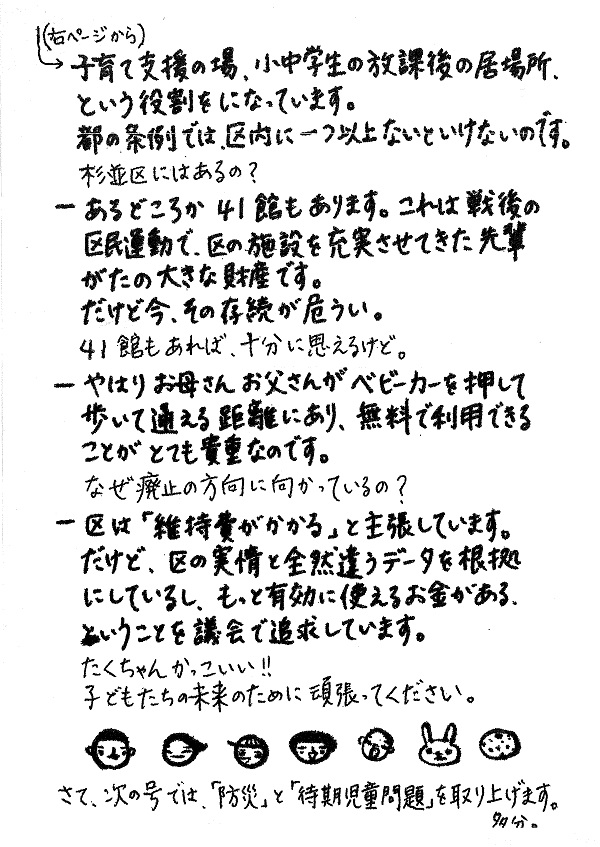 (右ページから)
子育て支援の場、小中学生の放課後の居場所、
という役割をになっています。
都の条例では、区内に一つ以上ないといけないのです。
杉並区にはあるの?
ー あるどころか 41館もあります。これは戦後の
区民運動で、区の施設を充実させてきた先輩
がたの大きな財産です。
だけど今、その存続が危うい。
41館もあれば、十分に思えるけど。
ー やはりお母さんお父さんがベビーカーを押して
歩いて通える距離にあり、無料で利用できる
ことがとても貴重なのです。
なぜ廃止の方向に向かっているの?
ー 区は「維持費がかかる」と主張しています。
だけど、区の実情と全然違うデータを根拠
にしているし、もっと有効に使えるお金がある、
ということを議会で追求しています。
たくちゃんかっこいい!!
子どもたちの未来のために頑張ってください。
さて、次の号では、「防災」と「待期児童問題」を取り上げます。
多分。